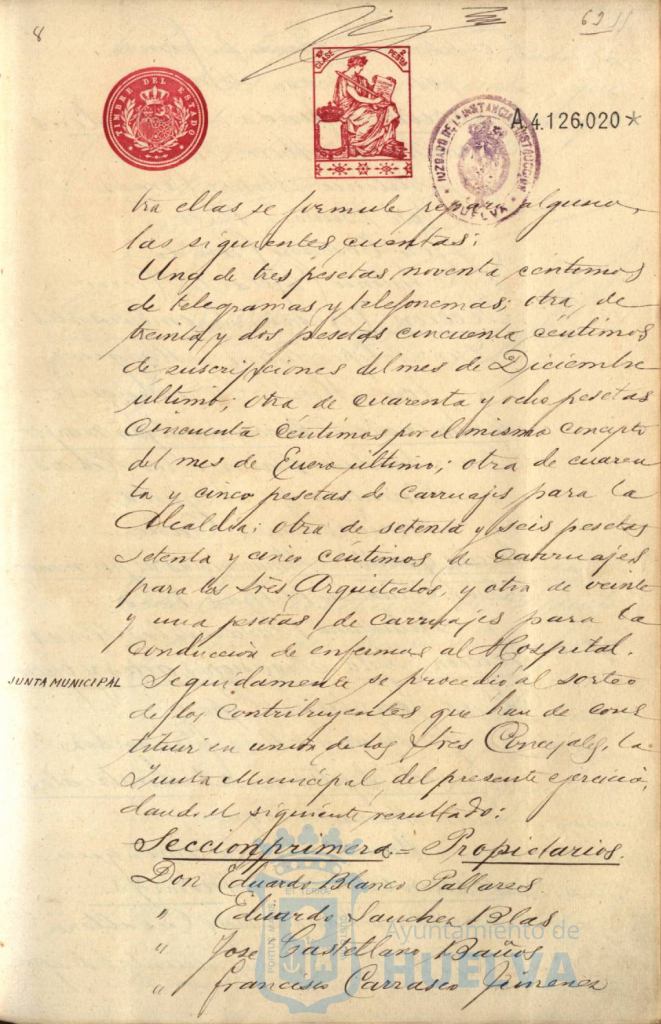 8
62
TIMBRE DEL ESTADO
10ª CLASE 2 PESETAS
JUZGADO DE 1ª INSTANCIA E INSTRUCCION
HUELVA
A.4.126.020*
tra ellas se formule reparo alguno,
las siguientes cuentas:
Una de tres pesetas noventa centimos
de telegramas y telefonemas; otra de
treinta y dos pesetas cincuenta céntimos
de suscripciones del mes de Diciembre
ultimo; otra de cuarenta y ocho pesetas
cincuenta céntimos por el mismo concepto
del mes de Enero último; otra de cuaren
ta y cinco pesetas de carruajes para la
Alcaldia; otra de setenta y seis pesetas
setenta y cinco céntimos de carruajes
para los Sres. Arquitectos, y otra de veinte
y una pesetas de carruajes para la
conducción de enfermas al Hospital.
JUNTA MUNICIPAL
Seguidamente se procedió al sorteo
de los contribuyentes que han de cons
tituir en unión de los Sres Concejales, la
Junta Municipal del presente ejercicio,
dando el siguiente resultado:
Seccion primera = Propietarios.
Don Eduardo Blanco Pallares
" Eduardo Sanchez Blas
" Jose Castellano Baños
" Francisco Carrasco Jimenez
Ayuntamiento de
HUELVA